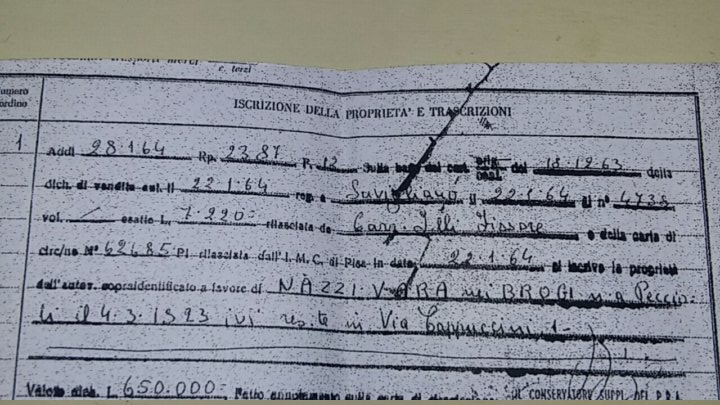 c. terzi
ISCRIZIONE DELLA PROPRIETA' E TRASCRIZIONI
1
Addì 28 1 64 Rp. 2387 P. 12 Sulla base del cert. orig. del 18.12.63 della
dich. di vendita aut. il 22 1 64 reg. a Savigliano il 22.1.64 al n° 4738
vol. / esatte L. 7.220= rilasciata da Carr. F.lli Fissore e della carta di
circ/ne N° 62685 PI rilasciata dall'I.M.C. di Pisa in data 22 1 64 si iscrive la proprietà
dell'autov. sopraidentificato a favore di NAZZI VARA nei BROGI n a Peccio-
li il 4.3.1923 ivi res.te in Via Cappuccini, 1-
Valore dich. L. 650.000=
IL CONSERVATORE SUPPL. DEL P.R.A.